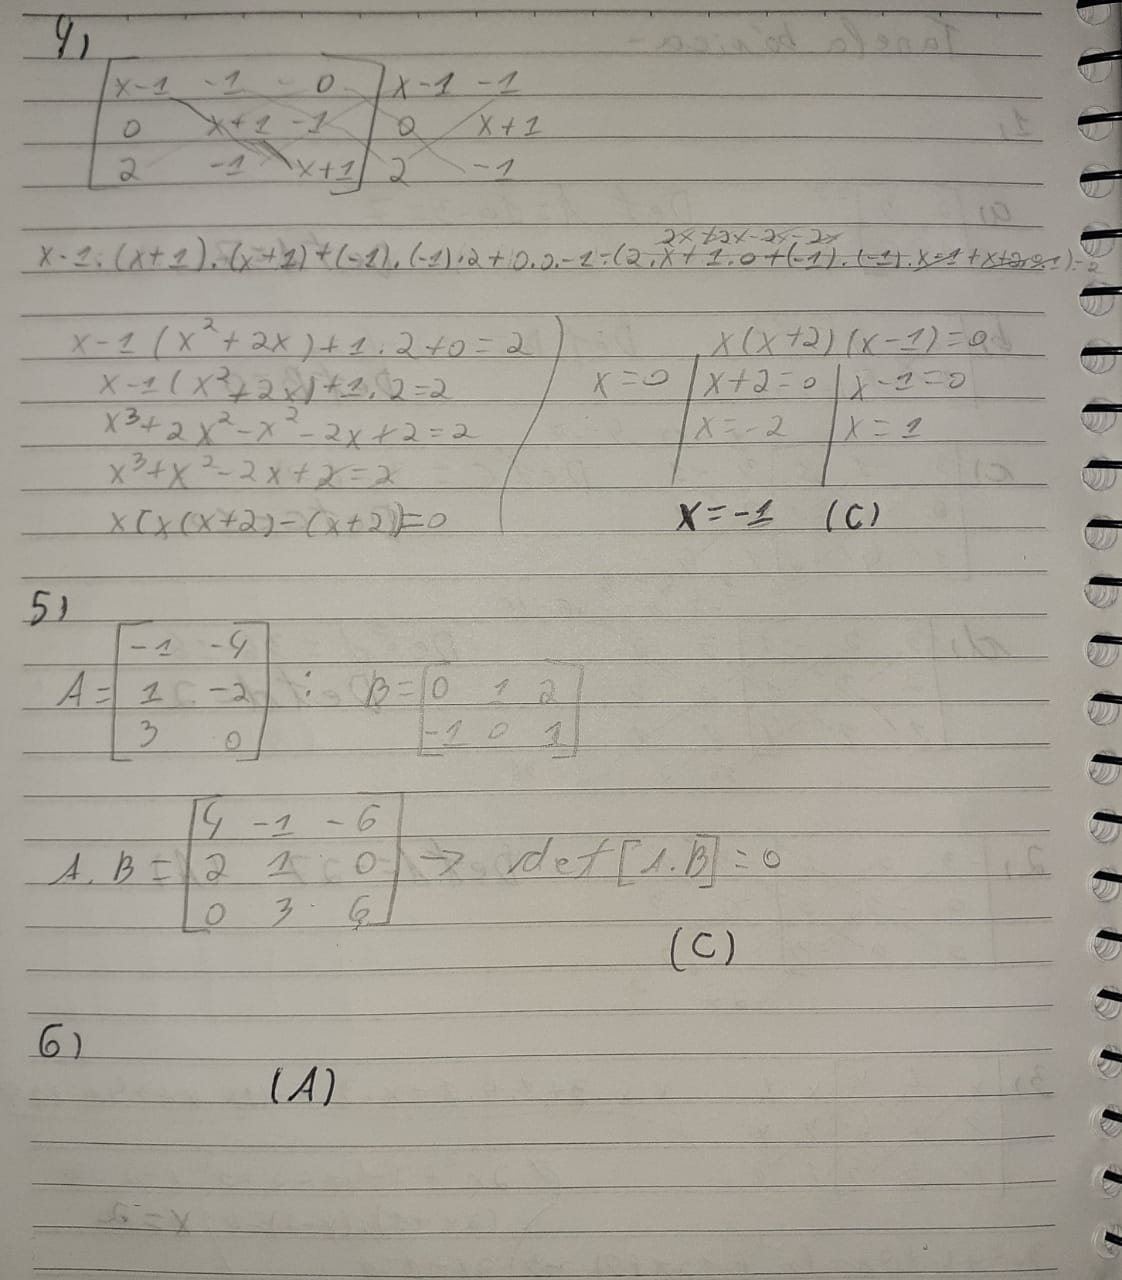 4)
x-1 -1 0 x-1 -1
0 x+1 -1 0 x+1
2 -1 x+1 2 -1
2x+2x-2x-2x
x-1.(x+1).(x+1)+(-1).(-1).2+0.0.-1-(2.x+1.0+(-1).(-1).x-1+x+1.0.-1)=2
x-1(x²+2x)+1.2+0=2
x-1(x²+2x)+1.2=2
x³+2x²-x²-2x+2=2
x³+x²-2x+2=2
x[x(x+2)-(x+2)]=0
x(x+2)(x-1)=0
x=0 | x+2=0 | x-1=0
x=-2 | x=1
x=-1 (C)
5)
A= -1 -4
1 -2
3 0
; B= 0 1 2
-1 0 1
A.B= 4 -1 -6
2 1 0
0 3 6
→ det[A.B]=0
(C)
6)
(A)